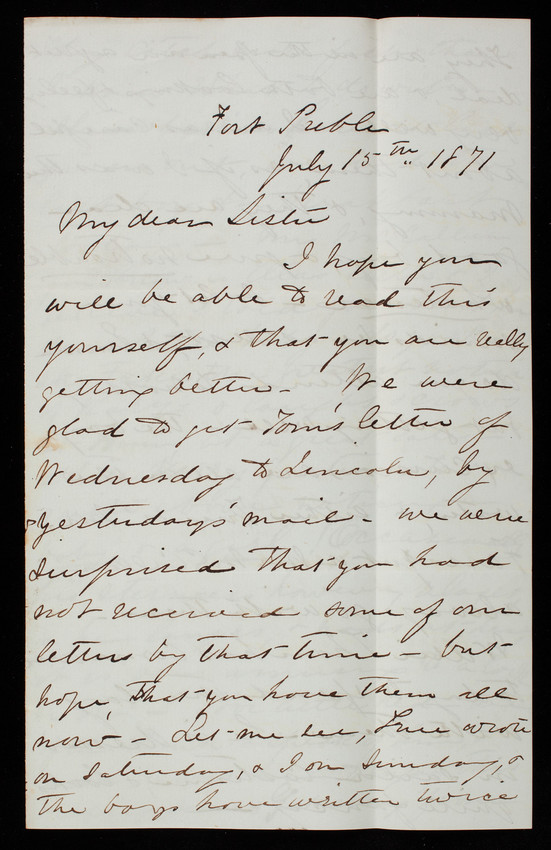 Fort Preble
July 15th 1871
My dear Sister
I hope you
will be able to read this
yourself, & that you are really
getting better - We were
glad to get Tom's letter of
Wednesday to Lincoln, by
yesterday's mail - we were
surprised that you had
not received some of our
letters by that time - but
hope, that you have them all
now - Let me see, wrote
on Saturday, & I on Sunday, &
the boys have written twice